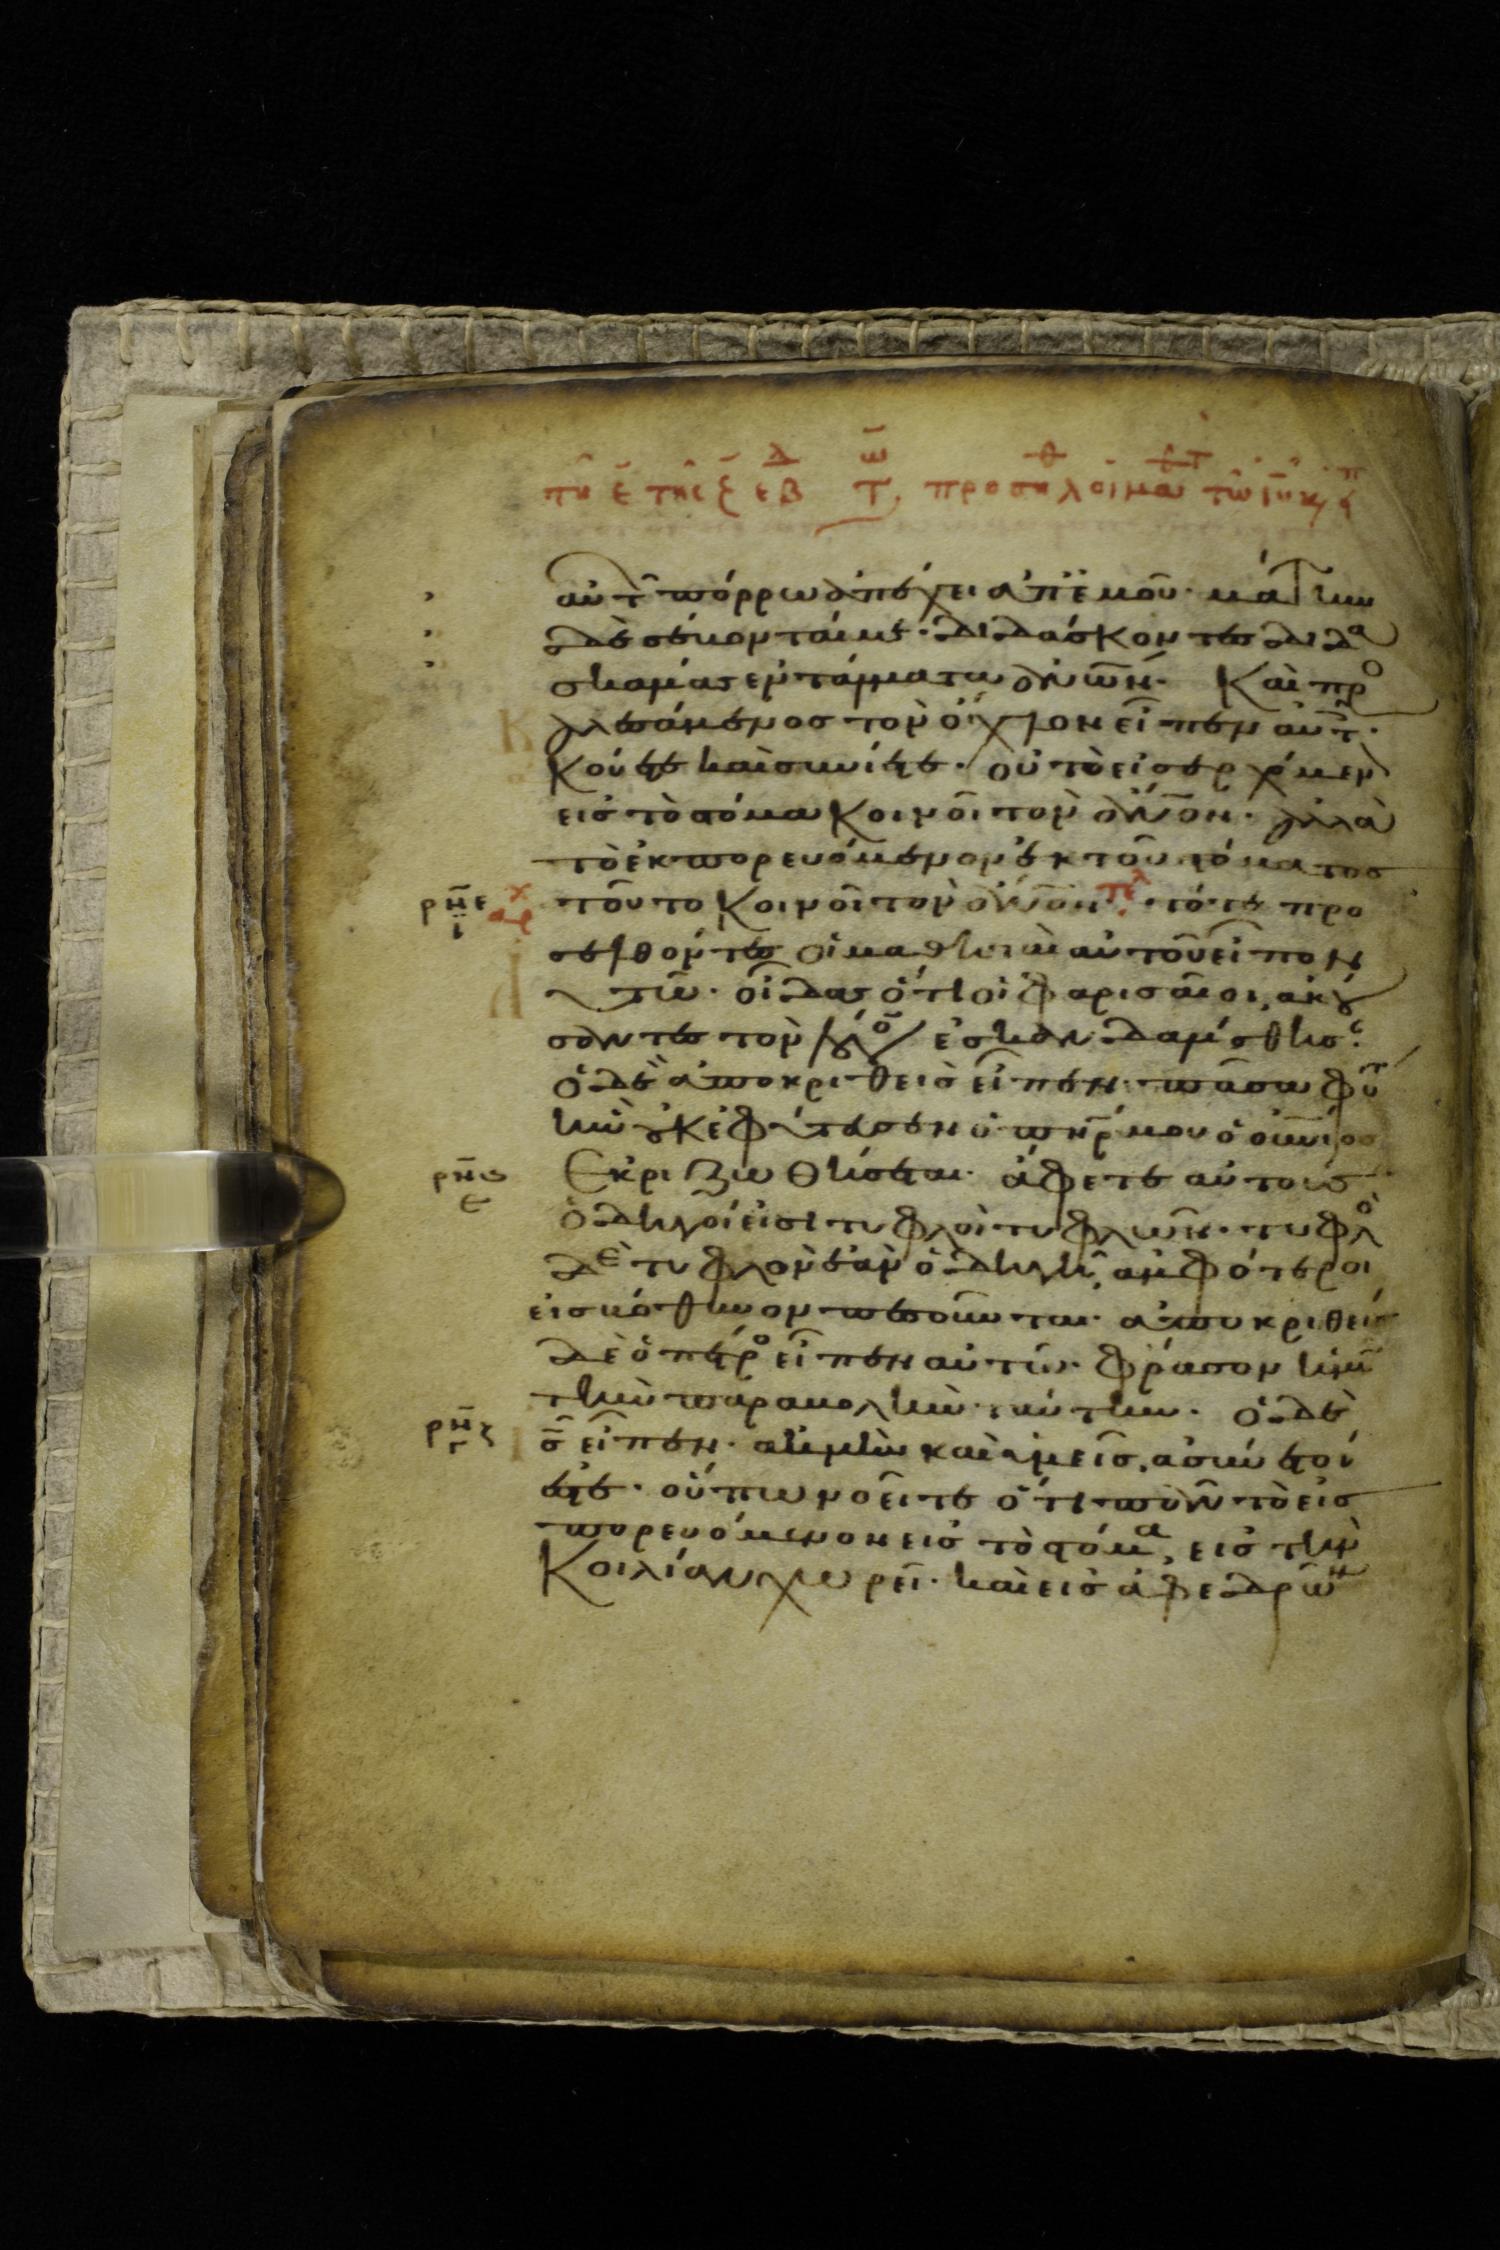 τη ε της ξ εβ
αυτ πόρρω ἀπέχει ἀπ ἐμοῦ· μάτην
δὲ σέβονταί με· διδάσκοντες διδα
σκαλίας ἐντάλματα ἀνων· Καὶ προ
καλεσάμενος τὸν ὄχλον εἶπεν αὐτ·
κούετε καὶ συνίετε· οὐ τὸ εἰσερχόμεν
εἰς τὸ στόμα κοινοῖ τὸν ἀνον· ἀλλὰ
τὸ ἐκπορευόμενον ἐκ τοῦ στόματος
ρπε τοῦτο κοινοῖ τὸν ἀνον· τότε προ
σελθόντες οἱ μαθηταὶ αὐτοῦ εἶπον
τῶ· οἶδας ὅτι οἱ φαρισαῖοι ἀκού
σαντες τὸν λόγο ἐσκανδαλίσθησ
ὁ δὲ ἀποκριθεὶς εἶπεν· πᾶσα φυτ
ἣν οὐκ ἐφύτευσεν ὁ πηρ μου ὁ οὐνιος
ἐκριζωθήσεται· ἄφετε αὐτούς
ὁδηγοί εἰσι τυφλοὶ τυφλῶν· τυφλὸ
δὲ τυφλὸν ἐὰν ὁδηγῆ, ἀμφότεροι
εἰς βόθυνον πεσοῦνται· ἀποκριθεὶς
δὲ ὁ πέτρο εἶπεν αὐτῶ· φράσον ἡμῖ
τὴν παραβολὴν ταύτην· ὁ δὲ
ις εἶπεν· ἀκμὴν καὶ ὑμεῖς, ἀσύνετοί
ἐστε· οὔπω νοεῖτε ὅτι πᾶν τὸ εἰσ
πορευόμενον εἰς τὸ στόμα, εἰς τὴν
κοιλίαν χωρεῖ· καὶ εἰς ἀφεδρῶν